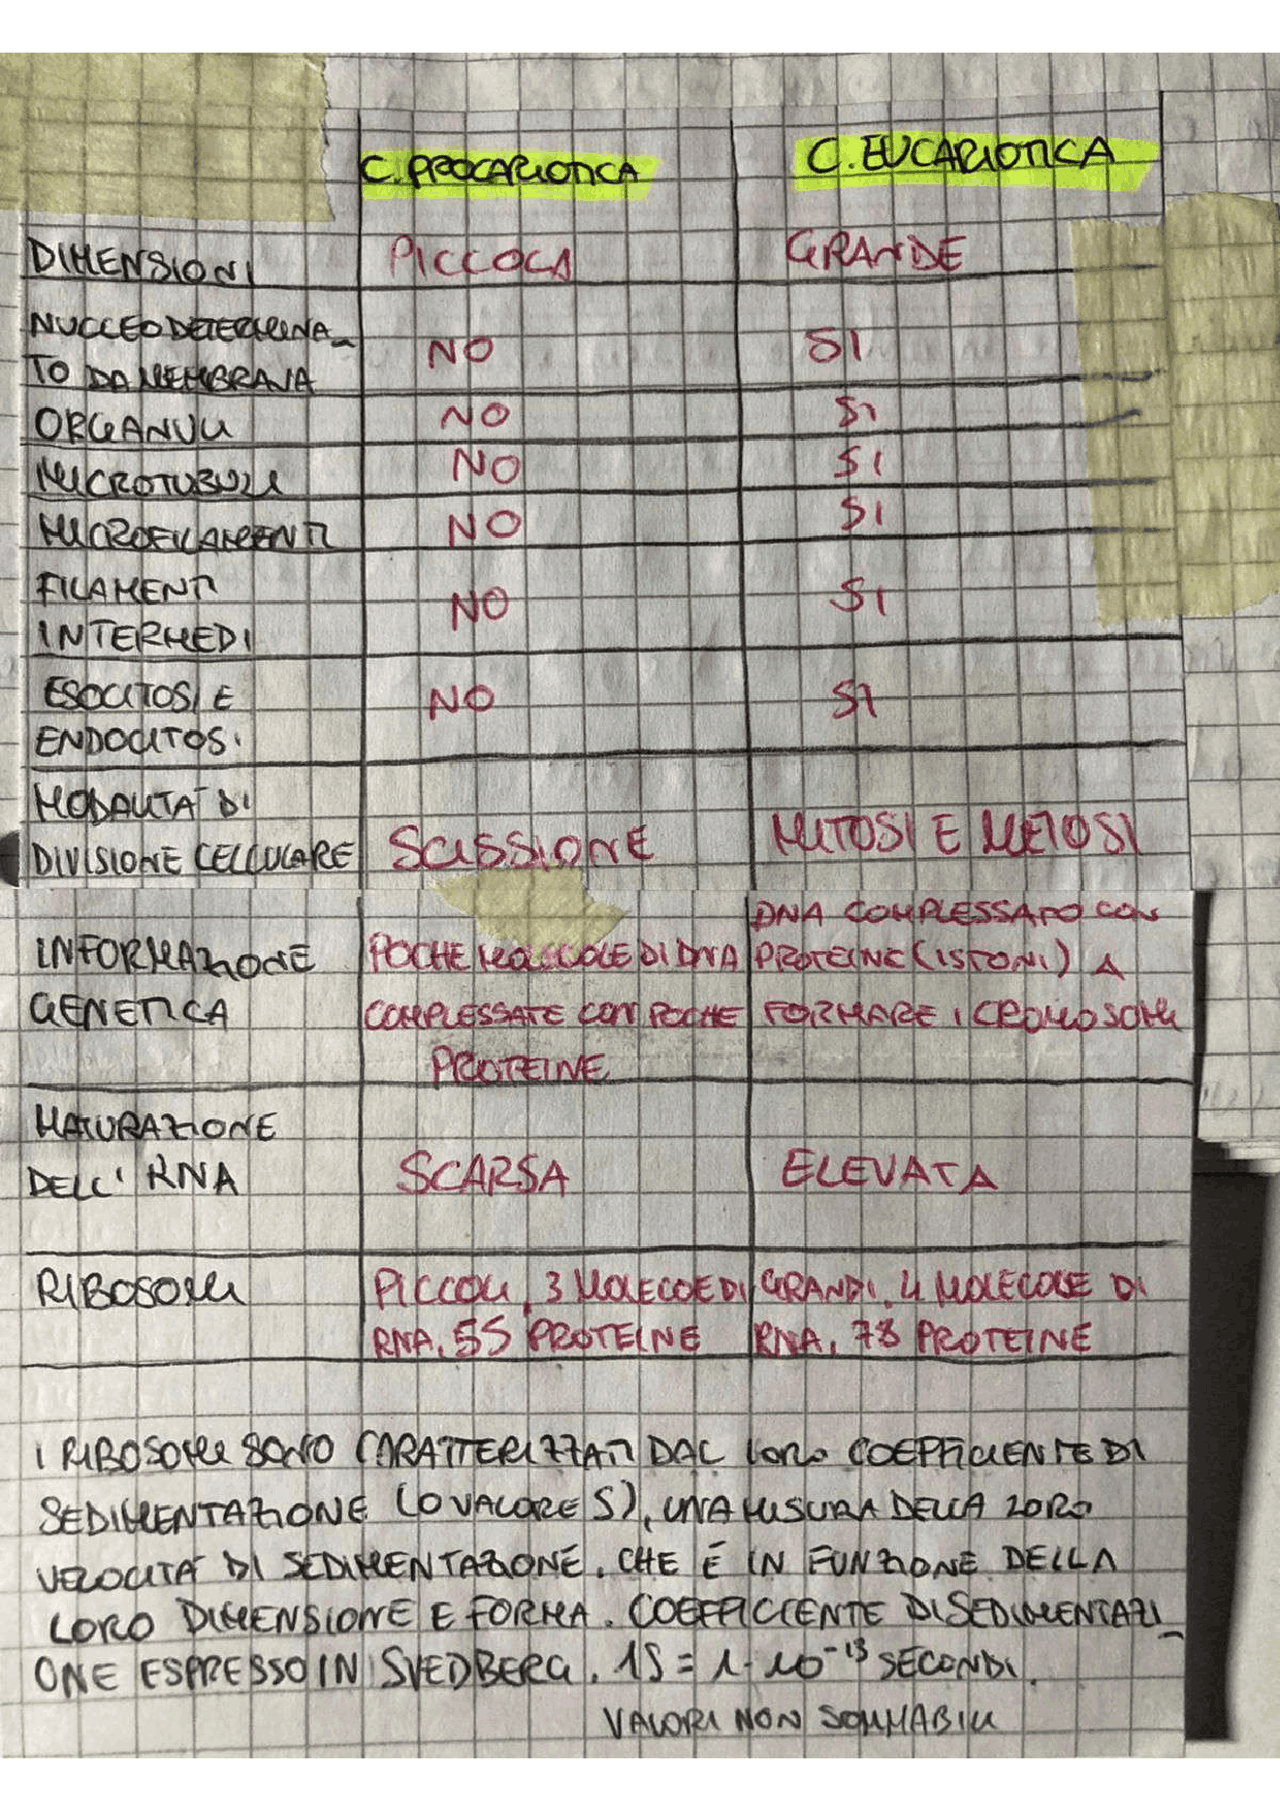 C. PROCARIOTICA C. EUCARIOTICA
DIMENSIONI PICCOLA GRANDE
NUCLEO DETERMINA_
TO DA MEMBRANA NO SI
ORGANULI NO SI
MICROTUBULI NO SI
MICROFILAMENTI NO SI
FILAMENTI
INTERMEDI NO SI
ESOCITOSI E
ENDOCITOSI NO SI
MODALITÀ DI
DIVISIONE CELLULARE SCISSIONE MITOSI E MEIOSI
INFORMAZIONE
GENETICA
POCHE MOLECOLE DI DNA
COMPLESSATE CON POCHE
PROTEINE
DNA COMPLESSATO CON
PROTEINE (ISTONI) A
FORMARE I CROMOSOMI
MATURAZIONE
DELL' RNA SCARSA ELEVATA
RIBOSOMI
PICCOLI, 3 MOLECOE DI
RNA, 55 PROTEINE
GRANDI, 4 MOLECOLE DI
RNA, 78 PROTEINE
I RIBOSOMI SONO CARATTERIZZATI DAL LORO COEFFICIENTE DI
SEDIMENTAZIONE (O VALORE S), UNA MISURA DELLA LORO
VELOCITÀ DI SEDIMENTAZIONE, CHE É IN FUNZIONE DELLA
LORO DIMENSIONE E FORMA. COEFFICIENTE DI SEDIMENTAZI_
ONE ESPRESSO IN SVEDBERG. 1S = 1 · 10⁻¹³ SECONDI.
VALORI NON SOMMABILI